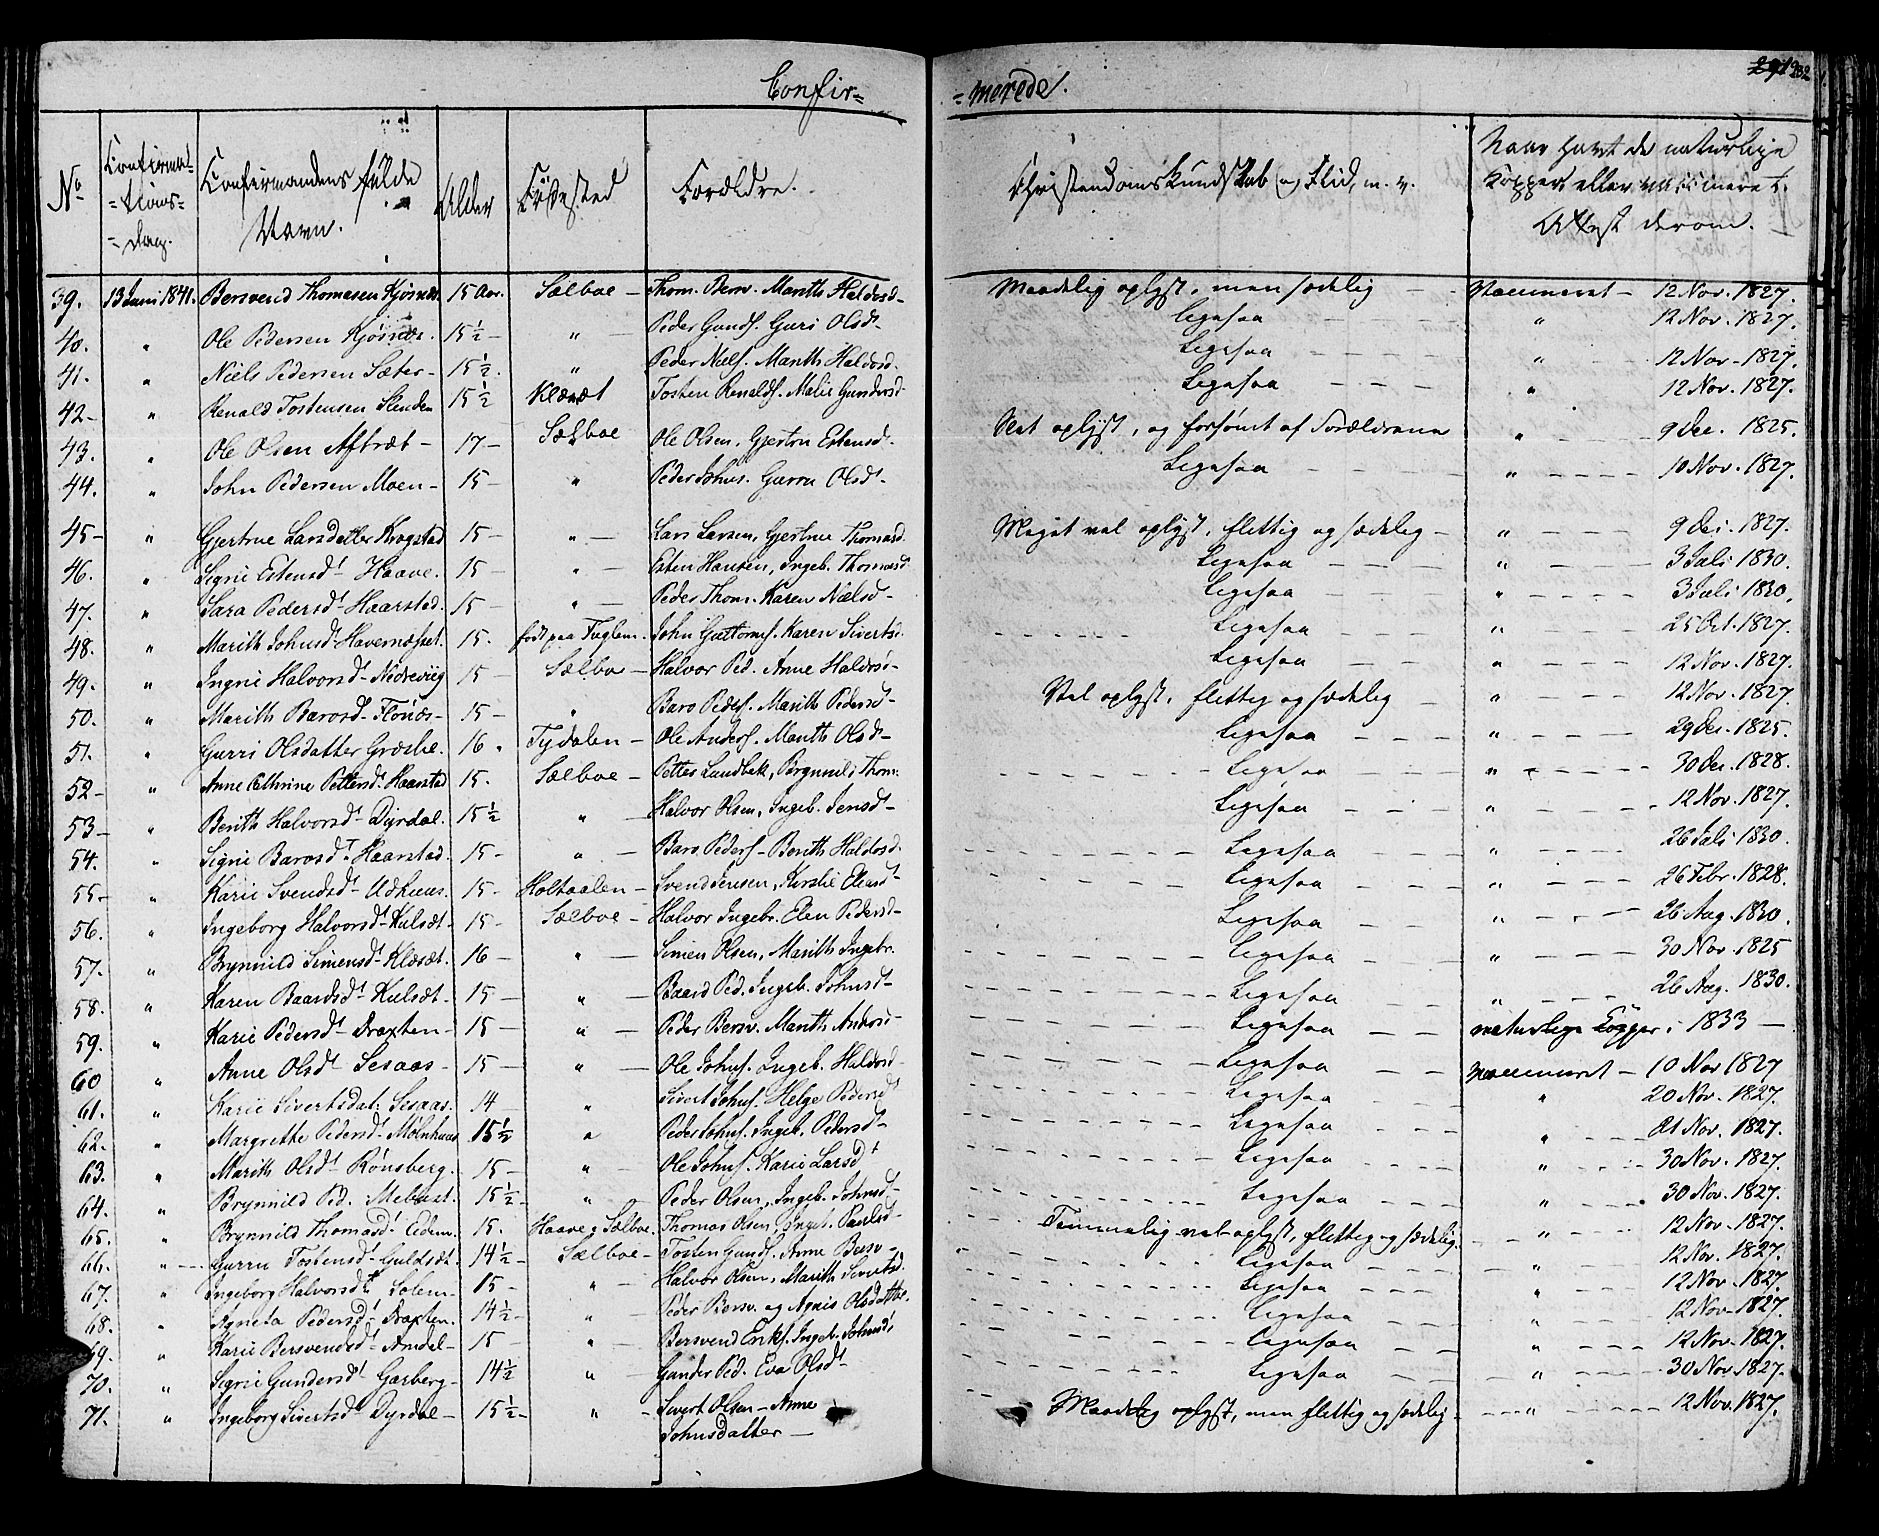 Confir=
=merede.
232
No
Confirmat-
=tions-
=Dag.
Confirmandens fulde
Navn.
Alder
Fødested
Forældre.
Christendomskundskab og Flid, m. v.
Naar havt de naturlige
Kopper eller vaccineret.
Attest derom.
39. 13 Juni 1841. Bersvend Thomesen Kjøsnæs 15 Aar. Sælboe - Thom. Bersv. Marith Haldosd- Maadelig oplyst, men sædelig - Vaccineret - 12 Nov. 1827.
40. " Ole Pedersen Kjøsnæs. 15½ - " - Peder Gunds. Guri Olsdt- Ligesaa - - - " 12 Nov. 1827.
41. " Niels Pedersen Sæter- 15½. " Peder Niels. Marith Haldosd. Ligesaa - - - " 12 Nov. 1827.
42- " Renald Tostensen Slenden 15½ Klæræt Tosten Renalds. Malie Gundersd. Ligesaa - - - " 12 Nov. 1827.
43. " Ole Olsen Aftræt - 17- Sælboe Ole Olsen, Gjertru Estensdt. Slet oplyst, og forsømt af Forældrene " - - 9 Dec. 1825.
44. " John Pedersen Moen - 15 - " Peder Johns. Gurru Olsdt- Ligesaa - - - - " - - - - 10 Nov. 1827.
45- " Gjertrue Larsdatter Krogstad 15 - " - Lars Larsen, Gjertrue Thomasd. Meget vel oplyst, flittig og sædelig - " - - 9 Dec. 1827.
46. " Sigrie Estensdt- Haave. 15 - " - Esten Hansen, Ingeb. Thomasd. Ligesaa - - - " - - - 3 Juli 1830.
47. " Sara Pedersdt Haarstad. 15 - " - Peder Thom. Karen Nielsd- Ligesaa - - " - - - - 3 Juli 1830.
48. " Marith Johnsdt Havernæsset. 15. født paa Fuglem. John Guttorms. Karen Sivertsd. Ligesaa " - - - 25 Oct. 1827.
49. " Ingrie Halvorsdt- Nedrevig 15 - Sælboe - Halvor Ped. Anne Haldosd- Ligesaa - - " - - - 12 Nov. 1827.
50. " Marith Barosd- Flønæs- 15 - " Baro Peders. Marith Pedersd- Vel oplyst, flittig og sædelig - " - - - 12 Nov. 1827.
51. " Gurri Olsdatter Græsle. 16. Tydalen - Ole Anders. Marith Olsd- Ligesaa - - - " - - - 29 Dec. 1825.
52- " Anne Cathrine Pettersdt Haarstad 15. Sælboe - Petter Lundbek, Brynnil. Thom. Ligesaa - - - " - - - - 30 Dec. 1828.
53- " Berith Halvorsdt Dyrdal. 15½ " - Halvor Olsen, Ingeb. Jensdt- Ligesaa - - - " - - - 12 Nov. 1827.
54. " Sigrie Barosdt Haarstad. 15- " - Baro Peders- Berith Haldosd. Ligesaa - - " - - - 26 Juli 1830.
55- " Karie Svendsdt Udhuus. 15- Holtaalen - Svend Jensen, Kirstie Eliasdt- Ligesaa - - " - - - 26 Febr. 1828.
56. " Ingeborg Halvorsdt- Kulsæt- 15 - Sælboe - Halvor Ingebr. Elen Pedersd- Ligesaa - - - " - - - 26 Aug. 1830.
57. " Brynnild Simensdt- Klæsæt. 16 - " - Simen Olsen, Marith Ingebr. Ligesaa - - - " - - - - 30 Nov. 1825
58. " Karen Baardsdt- Kulsæt- 15 - " - Baard Ped. Ingeb. Johnsdt- Ligesaa - - - " - - - 26 Aug. 1830.
59. " Karie Pedersdt Draxten- 15 - " - Peder Bersv. Marith Andersd- Ligesaa - - naturlige Kopper i 1833 -
60 " Anne Olsdt- Sesaas- 15 - " - Ole Johns. Ingeb. Haldosd- Ligesaa - - Vaccineret - 10 Nov 1827
61. " Karie Sivertsdat: Sesaas. 14 - " Sivert Johns. Helge Pedersdt Ligesaa " 20 Nov. 1827.
62. " Margrethe Pedersdt- Mølnhuus 15½ " Peder Johns. Ingeb. Pedersdt- Ligesaa - - - " - - - 21 Nov. 1827.
63. " Marith Olsdt Rønsberg. 15 - " - Ole Johns. Karie Larsdt Ligesaa - - - " - - - 30 Nov. 1827.
64. " Brynnild Ped. Mebust. 15½- " - Peder Olsen, Ingeb. Johnsdt- Ligesaa - - - " 30 Nov. 1827.
65. " Brynnild Thomasdt Eidem. 15. Haave, Sælboe. Thomas Olsen, Ingeb. Paulsdt- Temmelig vel oplyst, flittig og sædelig. " 12 Nov. 1827.
66. " Gurru Tostensdt- Guldsæt. 14½- Sælboe - Tosten Gunds. Anne Bersv- Ligesaa - - - " 12 Nov. 1827.
67. " Ingeborg Halvorsdt Solem- 15 - " - Halvor Olsen, Marith Sivertsd. Ligesaa " 12 Nov. 1827.
68. " Agneta Pedersdt- Draxten. 14½- " Peder Bersv. og Agnis Olsdatter. Ligesaa - - - " 12 Nov. 1827.
69. " Karie Bersvendsdt- Amdal- 15 " - Bersvend Eriks. Ingeb. Johnsdt. Ligesaa - - " - - - 12 Nov. 1827.
70. " Sigrie Gundersdt Garberg- 14½ " - Gunder Ped. Eva Olsdt- Ligesaa - - - " - - - 30 Nov. 1827.
71. " Ingeborg Sivertsdt Dyrdal - 15½- " - Sivert Olsen - Anne Maadelig oplyst, men flittig og sædelig - " - - 12 Nov. 1827.
Johnsdatter -